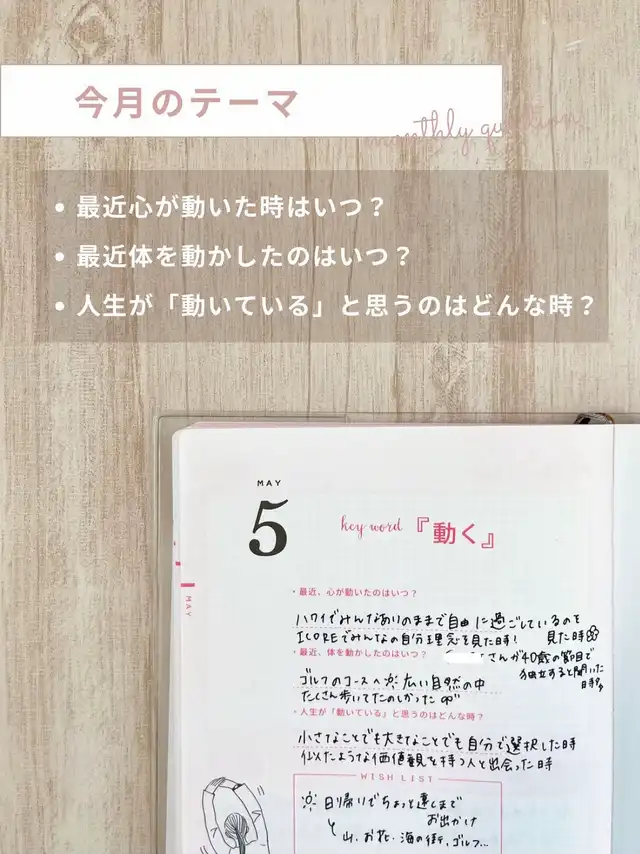 今月のテーマ
monthly question
• 最近心が動いた時はいつ？
• 最近体を動かしたのはいつ？
• 人生が「動いている」と思うのはどんな時？
MAY
5
key word 『動く』
MAY
・最近、心が動いたのはいつ？
ハワイでみんなありのままで自由に過ごしているのを
見た時
ICOREでみんなの自分理念を見た時！
さんが40歳の節目で
独立すると聞いた
日
・最近、体を動かしたのはいつ？
ゴルフのコースへ 広い自然の中
たくさん歩いてたのしかった
・人生が「動いている」と思うのはどんな時？
小さなことでも大きなことでも自分で選択した時
似たような価値観を持つ人と出会った時
WISH LIST
日帰りでちょっと遠くまで
お出かけ
山、お花、海の街、ゴルフ...